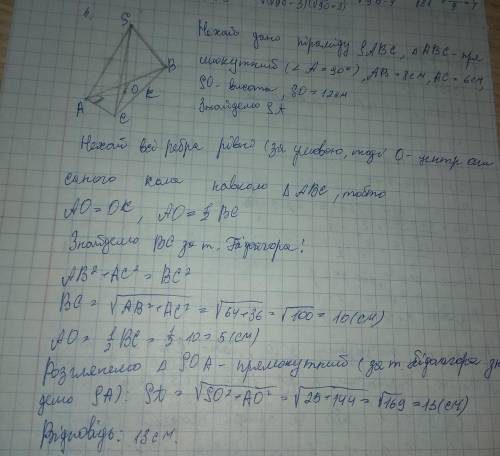 6.
S
B
A
O
K
C
Нехай дано піраміду SABC, △ABC - пря
мокутний (∠A = 90°), AB = 8см, AC = 6см,
SO - висота, SO = 12см
Знайдемо SA
Нехай всі ребра рівні (за умовою, тоді O - центр опи
саного кола навколо △ABC, тобто
AO = OK, AO = 1/2 BC
Знайдемо BC за т. Піфагора!
AB² + AC² = BC²
BC = √AB² + AC² = √64 + 36 = √100 = 10 (см)
AO = 1/2 BC = 1/2 · 10 = 5 (см)
Розглянемо △ SOA - прямокутний (за т. Піфагора зн
демо SA): SA = √SO² + AO² = √25 + 144 = √169 = 13 (см)
Відповідь: 13 см.